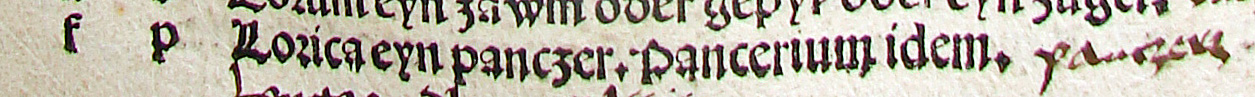 Lorum eyn zawm oder gepyß oder eyn zugel.
f p Lorica eyn panczer. Pancerium idem. panczer